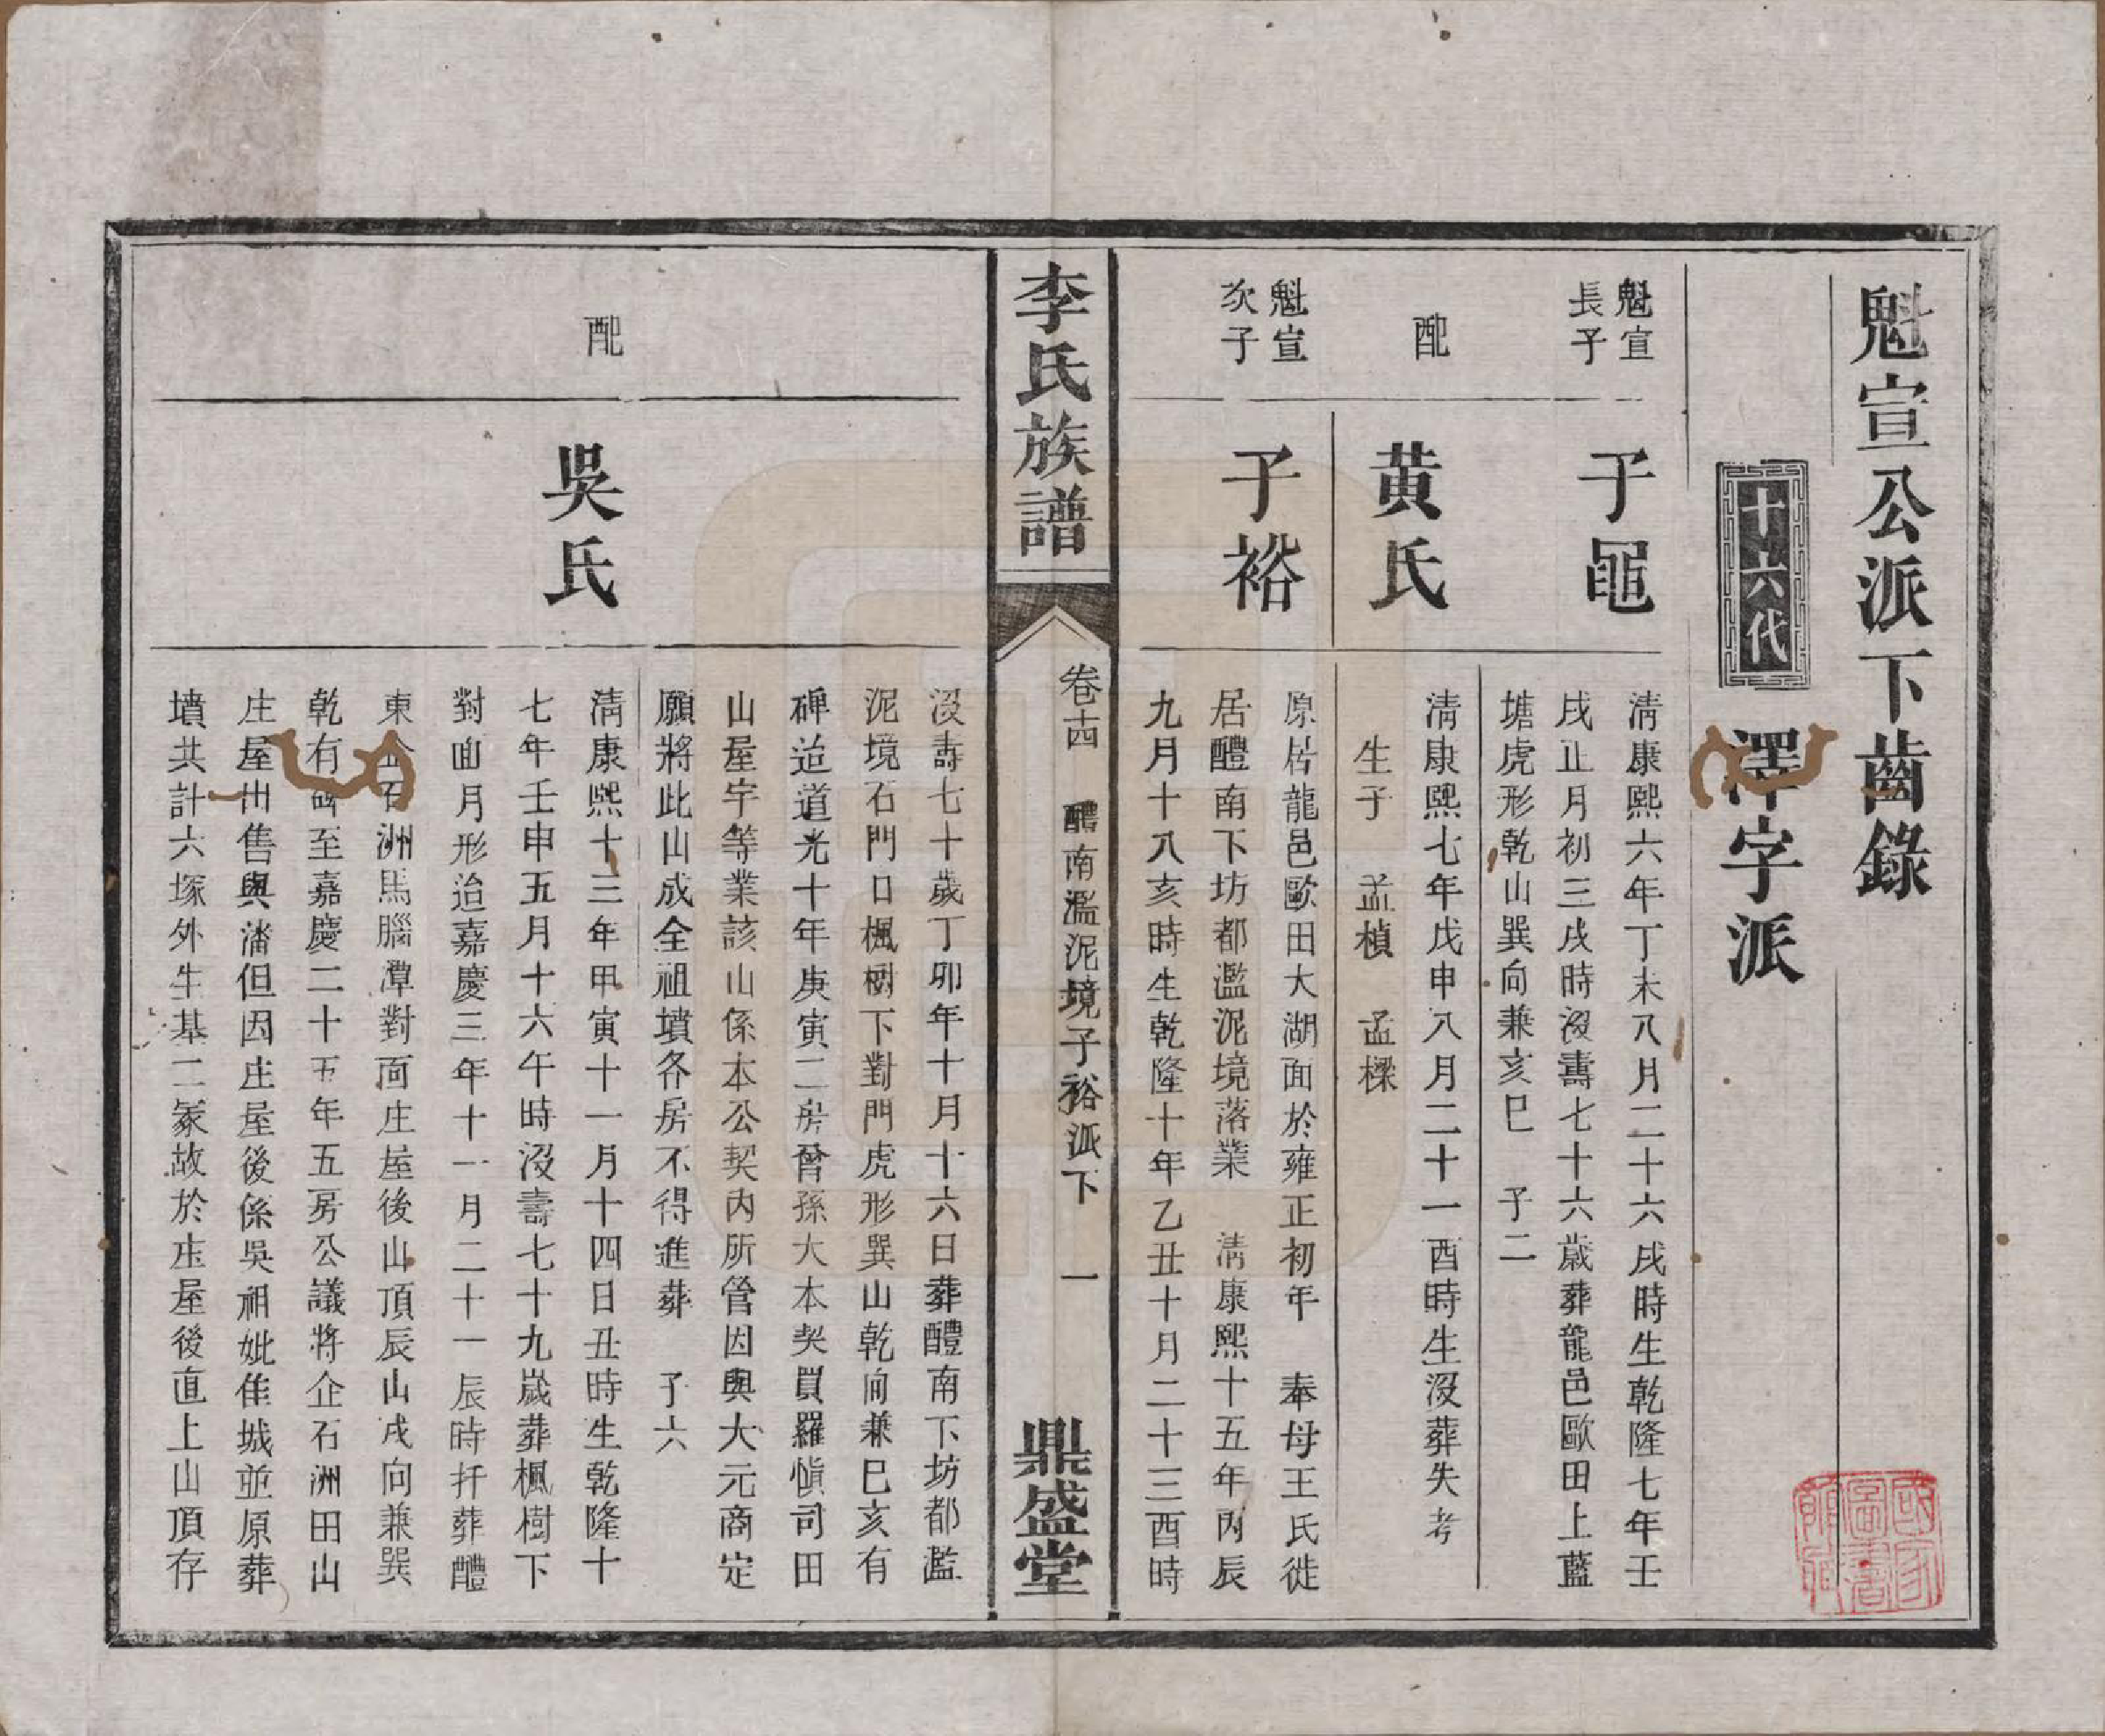 魁宣公派下齒錄
十六代 澤字派
魁宣
長子
子黽
清康熙六年丁未八月二十六戌時生乾隆七年壬
戌正月初三戌時沒壽七十六歲葬龍邑歐田上藍
塘虎形乾山巽向兼亥巳 子二
配
黄氏
清康熙七年戊申八月二十一酉時生沒葬失考
生子 孟楨 孟樑
魁宣
次子
子裕
原居龍邑歐田大湖面於雍正初年 奉母王氏徙
居醴南下坊都濫泥境落業 清康熙十五年丙辰
九月十八亥時生乾隆十年乙丑十月二十三酉時
李氏族譜
卷十四 醴南濫泥境子裕派下 一
鼎盛堂
沒壽七十歲丁卯年十月十六日葬醴南下坊都濫
泥境石門口楓樹下對門虎形巽山乾向兼巳亥有
碑迨道光十年庚寅二房曾孫大本契買羅愼司田
山屋宇等業該山係本公契內所管因與大元商定
願將此山成全祖墳各房不得進葬 子六
配
吳氏
清康熙十三年甲寅十一月十四日丑時生乾隆十
七年壬申五月十六午時沒壽七十九歲葬楓樹下
對面月形迨嘉慶三年十一月二十一辰時扦葬醴
東企石洲馬腦潭對面庄屋後山頂辰山戌向兼巽
乾有碑至嘉慶二十五年五房公議將企石洲田山
庄屋出售與潘但因庄屋後係吳祖妣佳城並原葬
墳共計六塚外生基二冢故於庄屋後直上山頂存